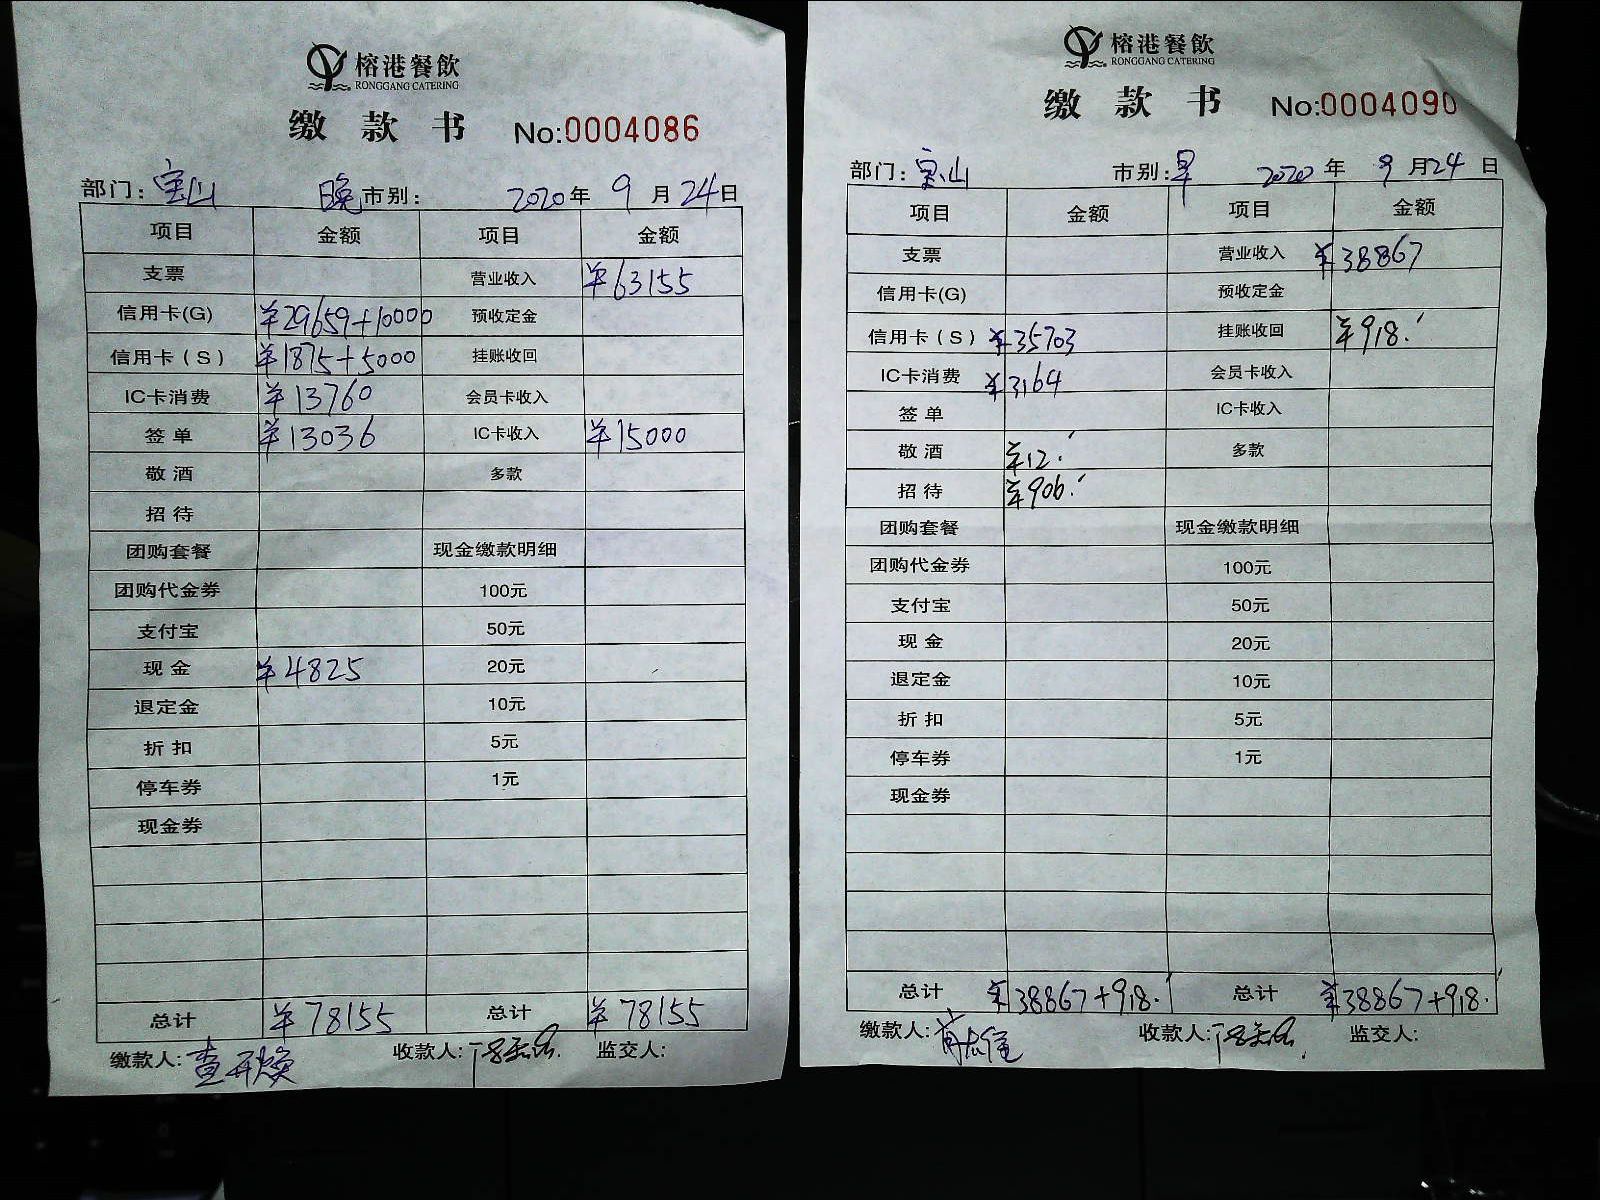 榕港餐飲
RONGGANG CATERING
缴款书 No:0004086
部门：宝山 晚市别： 2020年 9月24日
项目 金额 项目 金额
支票 营业收入 ¥63155
信用卡(G) ¥29659+10000 预收定金
信用卡（S） ¥1875+5000 挂账收回
IC卡消费 ¥13760 会员卡收入
签单 ¥13036 IC卡收入 ¥15000
敬酒 多款
招待
团购套餐 现金缴款明细
团购代金券 100元
支付宝 50元
现金 ¥4825 20元
退定金 10元
折扣 5元
停车券 1元
现金券
总计 ¥78155 总计 ¥78155
缴款人: 收款人: 监交人:
榕港餐飲
RONGGANG CATERING
缴款书 No:0004090
部门：宝山 市别：早 2020年 9月24日
项目 金额 项目 金额
支票 营业收入 ¥38867
信用卡(G) 预收定金
信用卡（S） ¥35703 挂账收回 ¥918.
IC卡消费 ¥3164 会员卡收入
签单 IC卡收入
敬酒 ¥12. 多款
招待 ¥906.
团购套餐 现金缴款明细
团购代金券 100元
支付宝 50元
现金 20元
退定金 10元
折扣 5元
停车券 1元
现金券
总计 ¥38867+918. 总计 ¥38867+918.
缴款人: 收款人: 监交人: